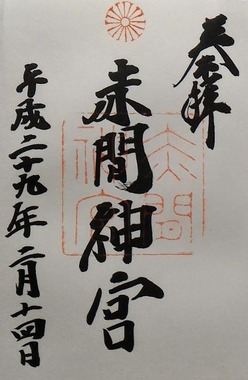 奉拝
赤間神宮
赤間
神宮
平成二十九年二月十四日